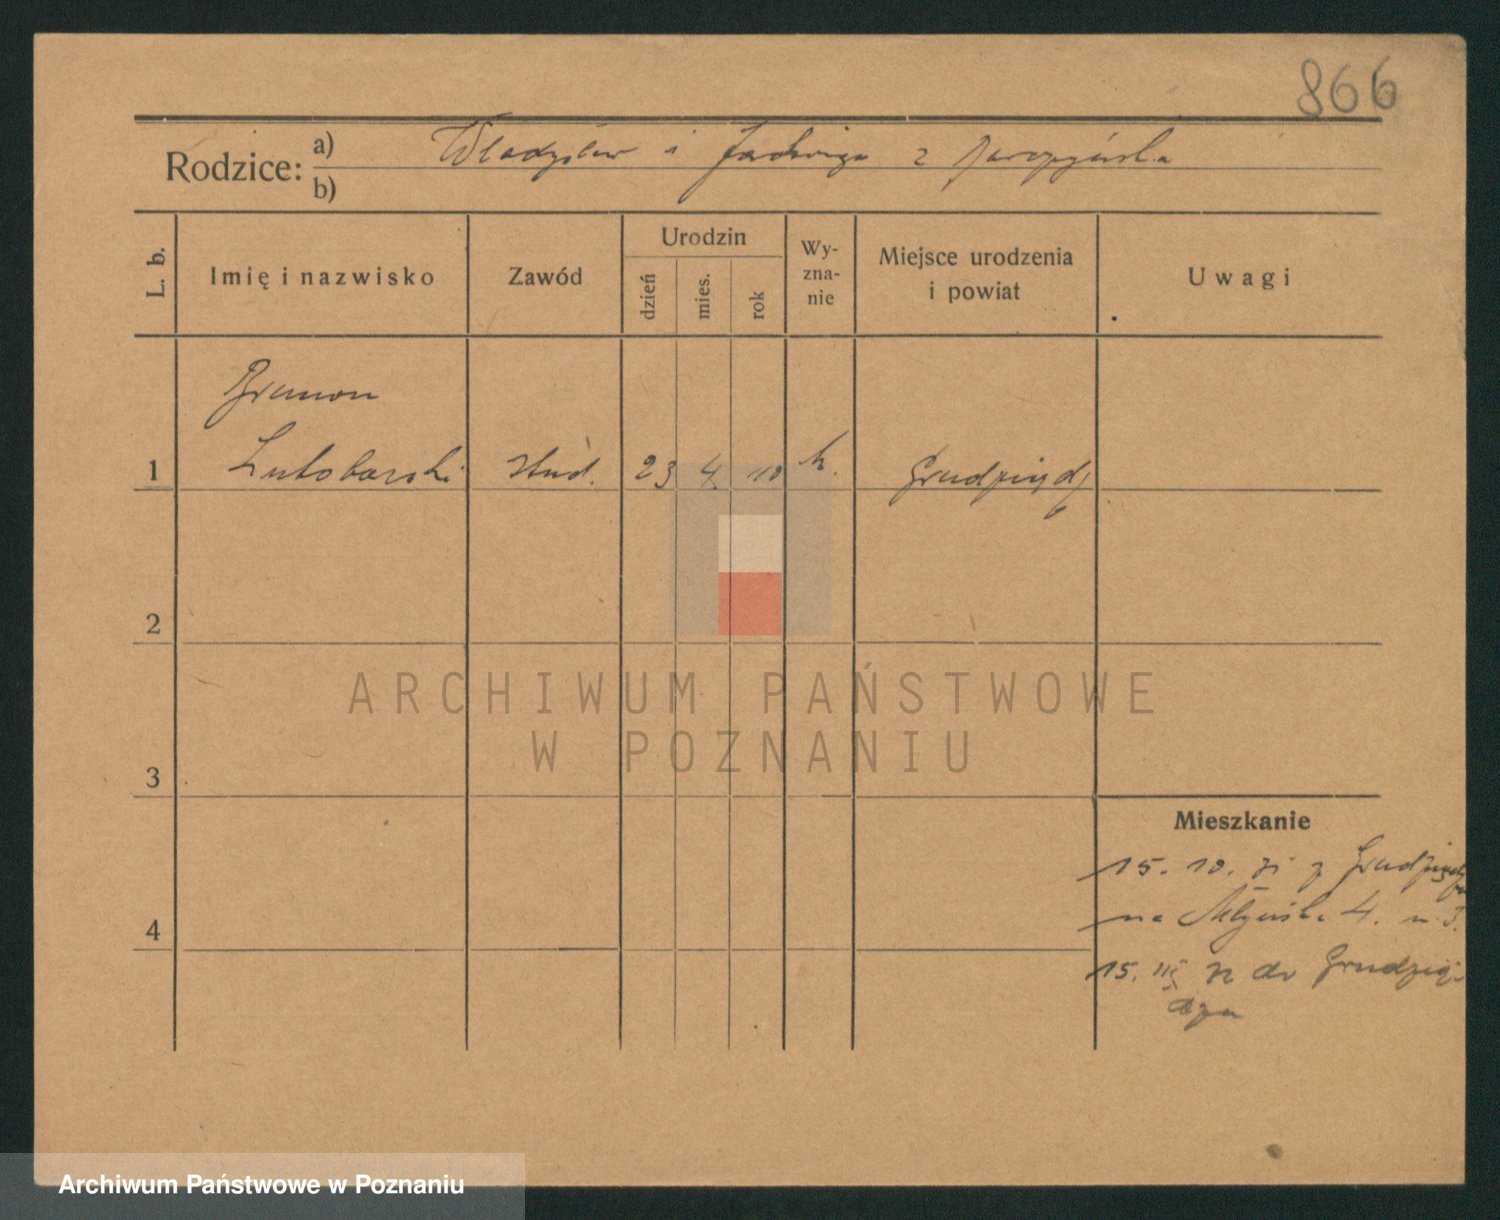 866
Rodzice: a) Władysław i Jadwiga z
b)
L. b.
Imię i nazwisko
Zawód
Urodzin
dzień
mies.
rok
Wy-
zna-
nie
Miejsce urodzenia
i powiat
Uwagi
Brunon
1 Lutoborski stud. 23 4. 10 k. Grudziądz
2
ARCHIWUM PAŃSTWOWE
W POZNANIU
3
Mieszkanie
15. 10. 31 z Grudziądza
na Młyńska 4. m. 3.
4
15. III 32 do Grudzią-
dza
Archiwum Państwowe w Poznaniu